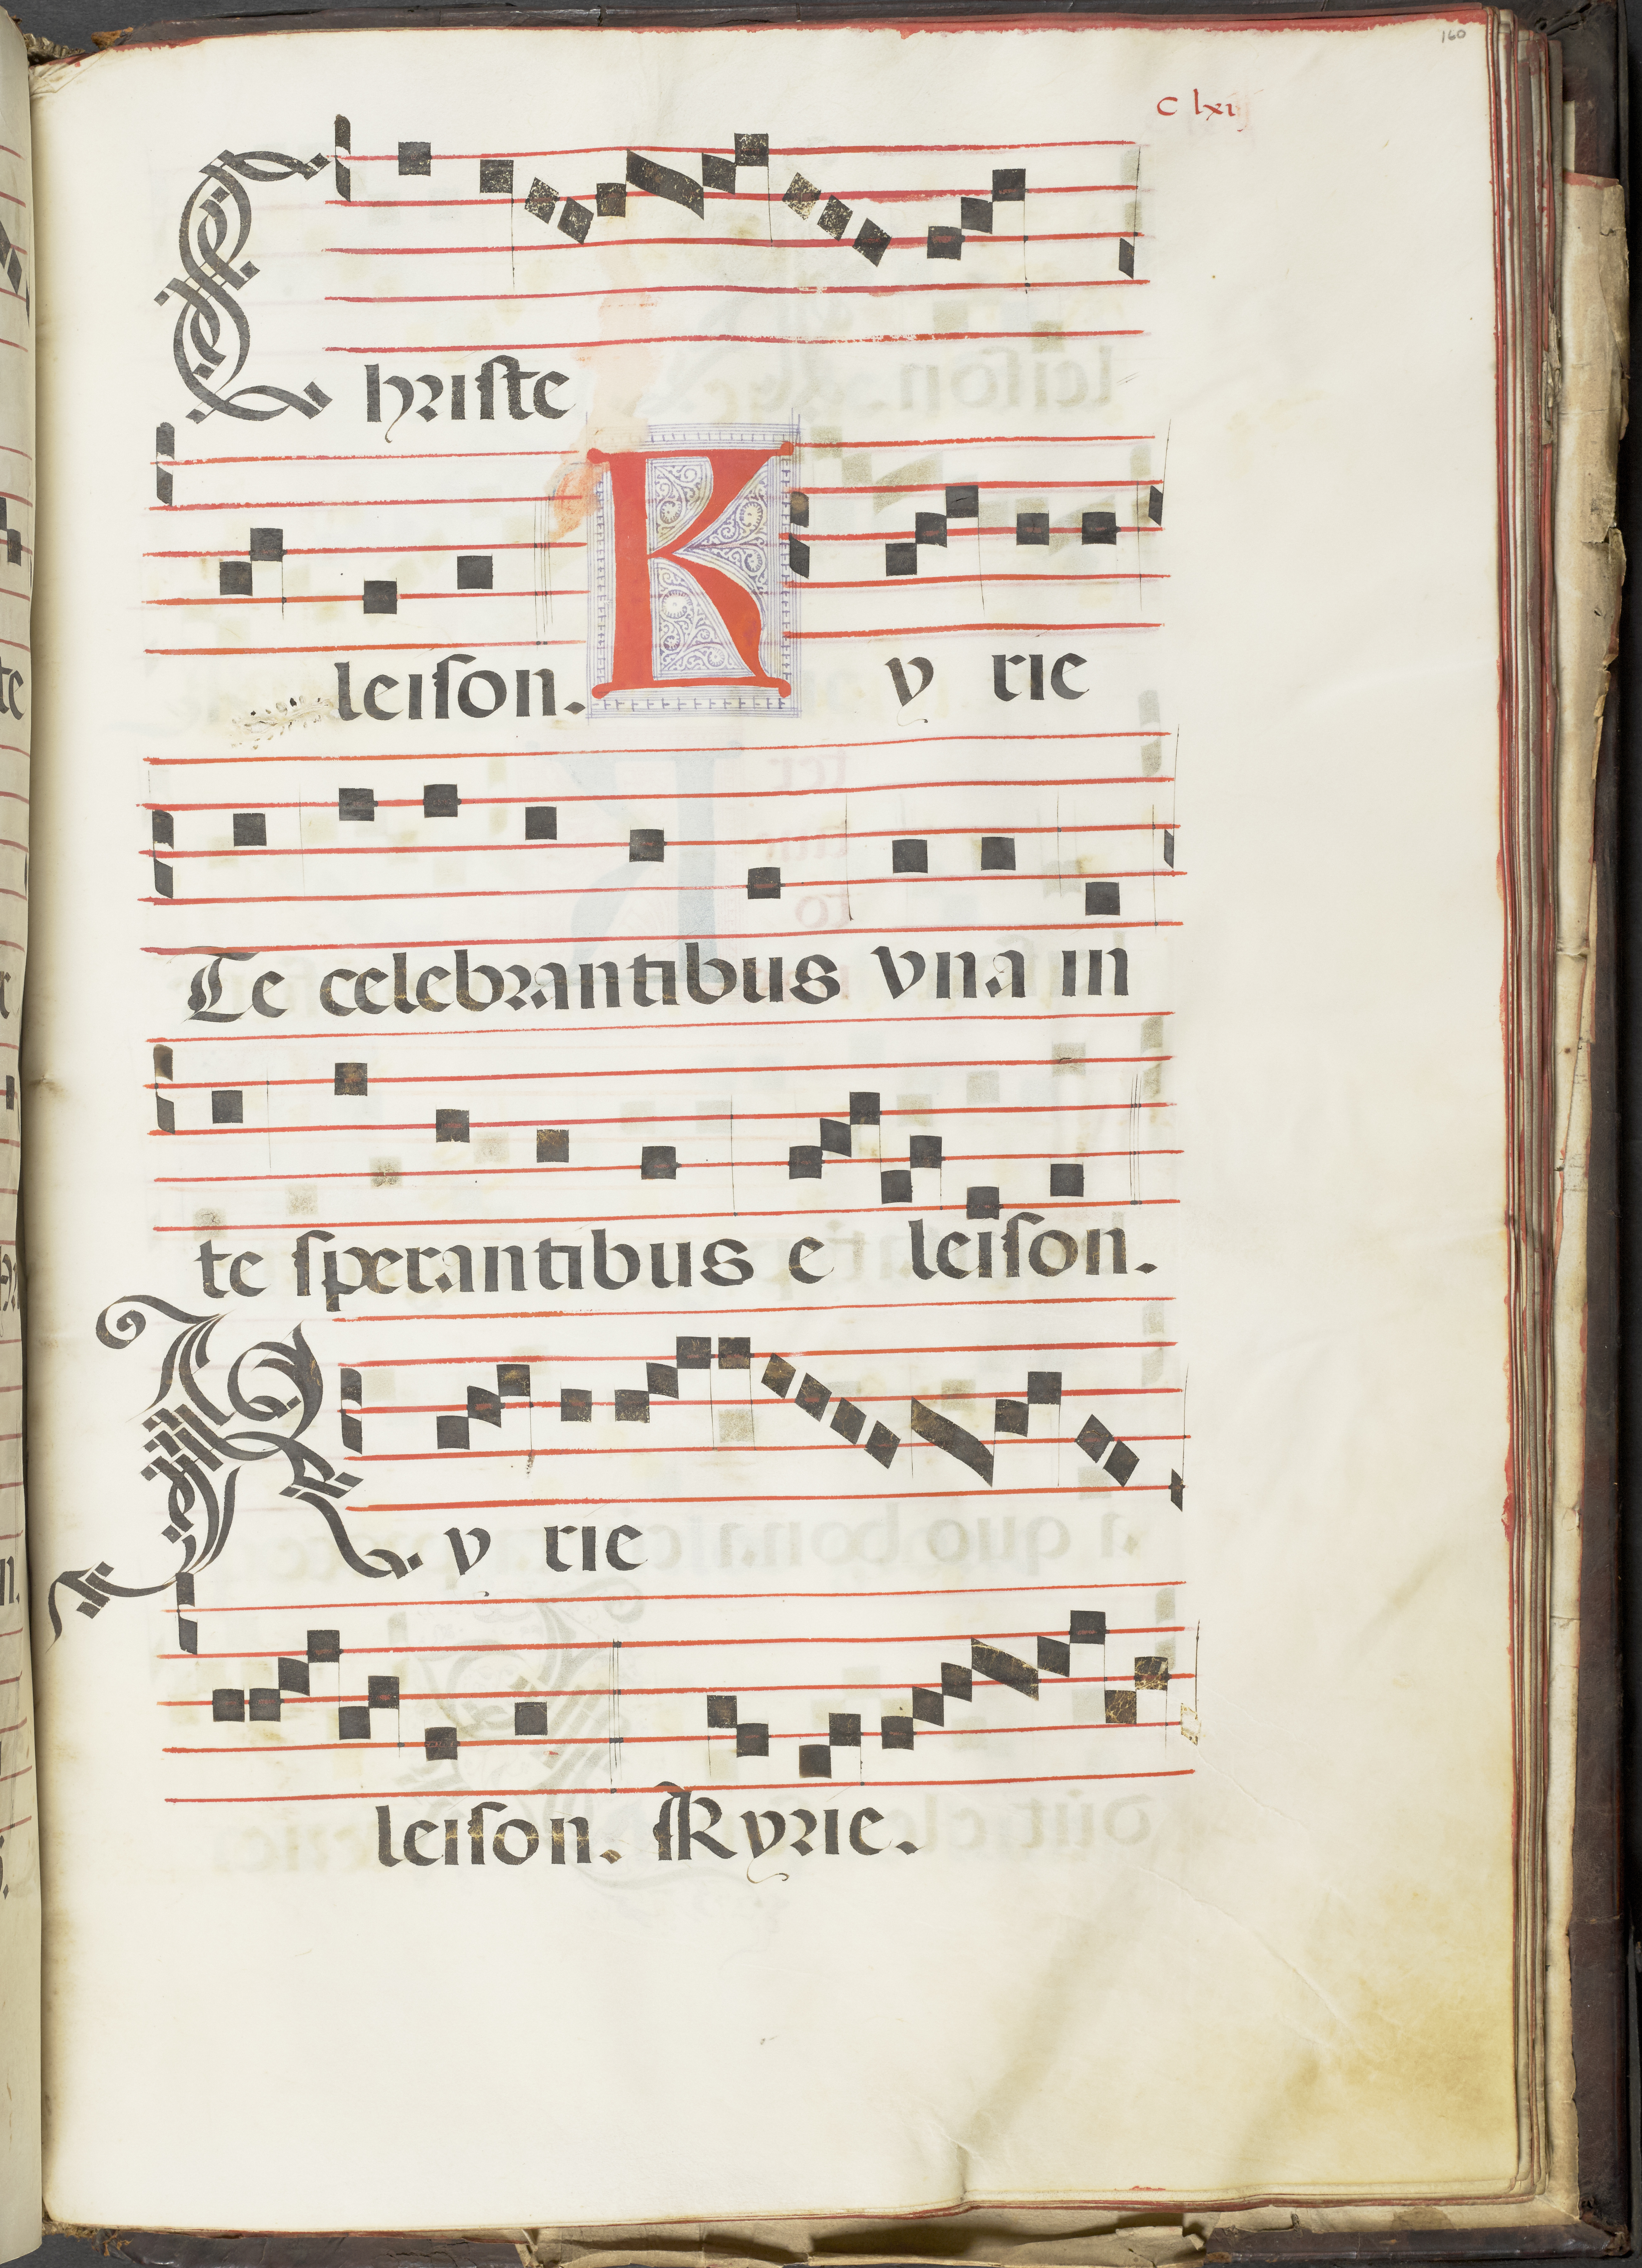 160
C lxi
Christe
leiſon. Ky rie
Te celebrantibus vna in
te ſperantibus e leiſon.
Ky rie
leiſon. Kyrie.